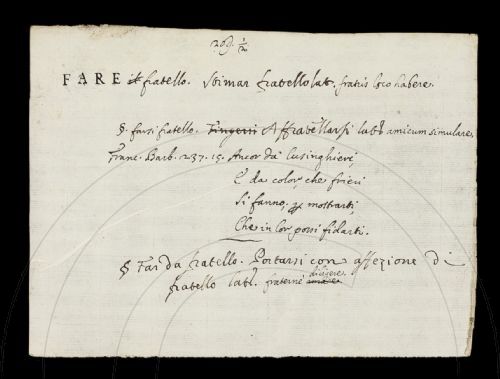 209. 1/2
FARE il fratello. Stimar fratello lat. fratris loco habere.
§. farsi fratello. Fingersi Affratellarsi latt. amicum simulare.
Franc. Barb. 237. 15. Ancor da lusinghieri,
E da color, che frieri
Si fanno, per mostrarti,
Che in lor possi fidarti.
§ Far da fratello. Portarsi con affezione di
diligere.
fratello latt. fraternè amare